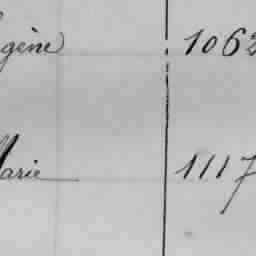 gène 1062
Marie 1117